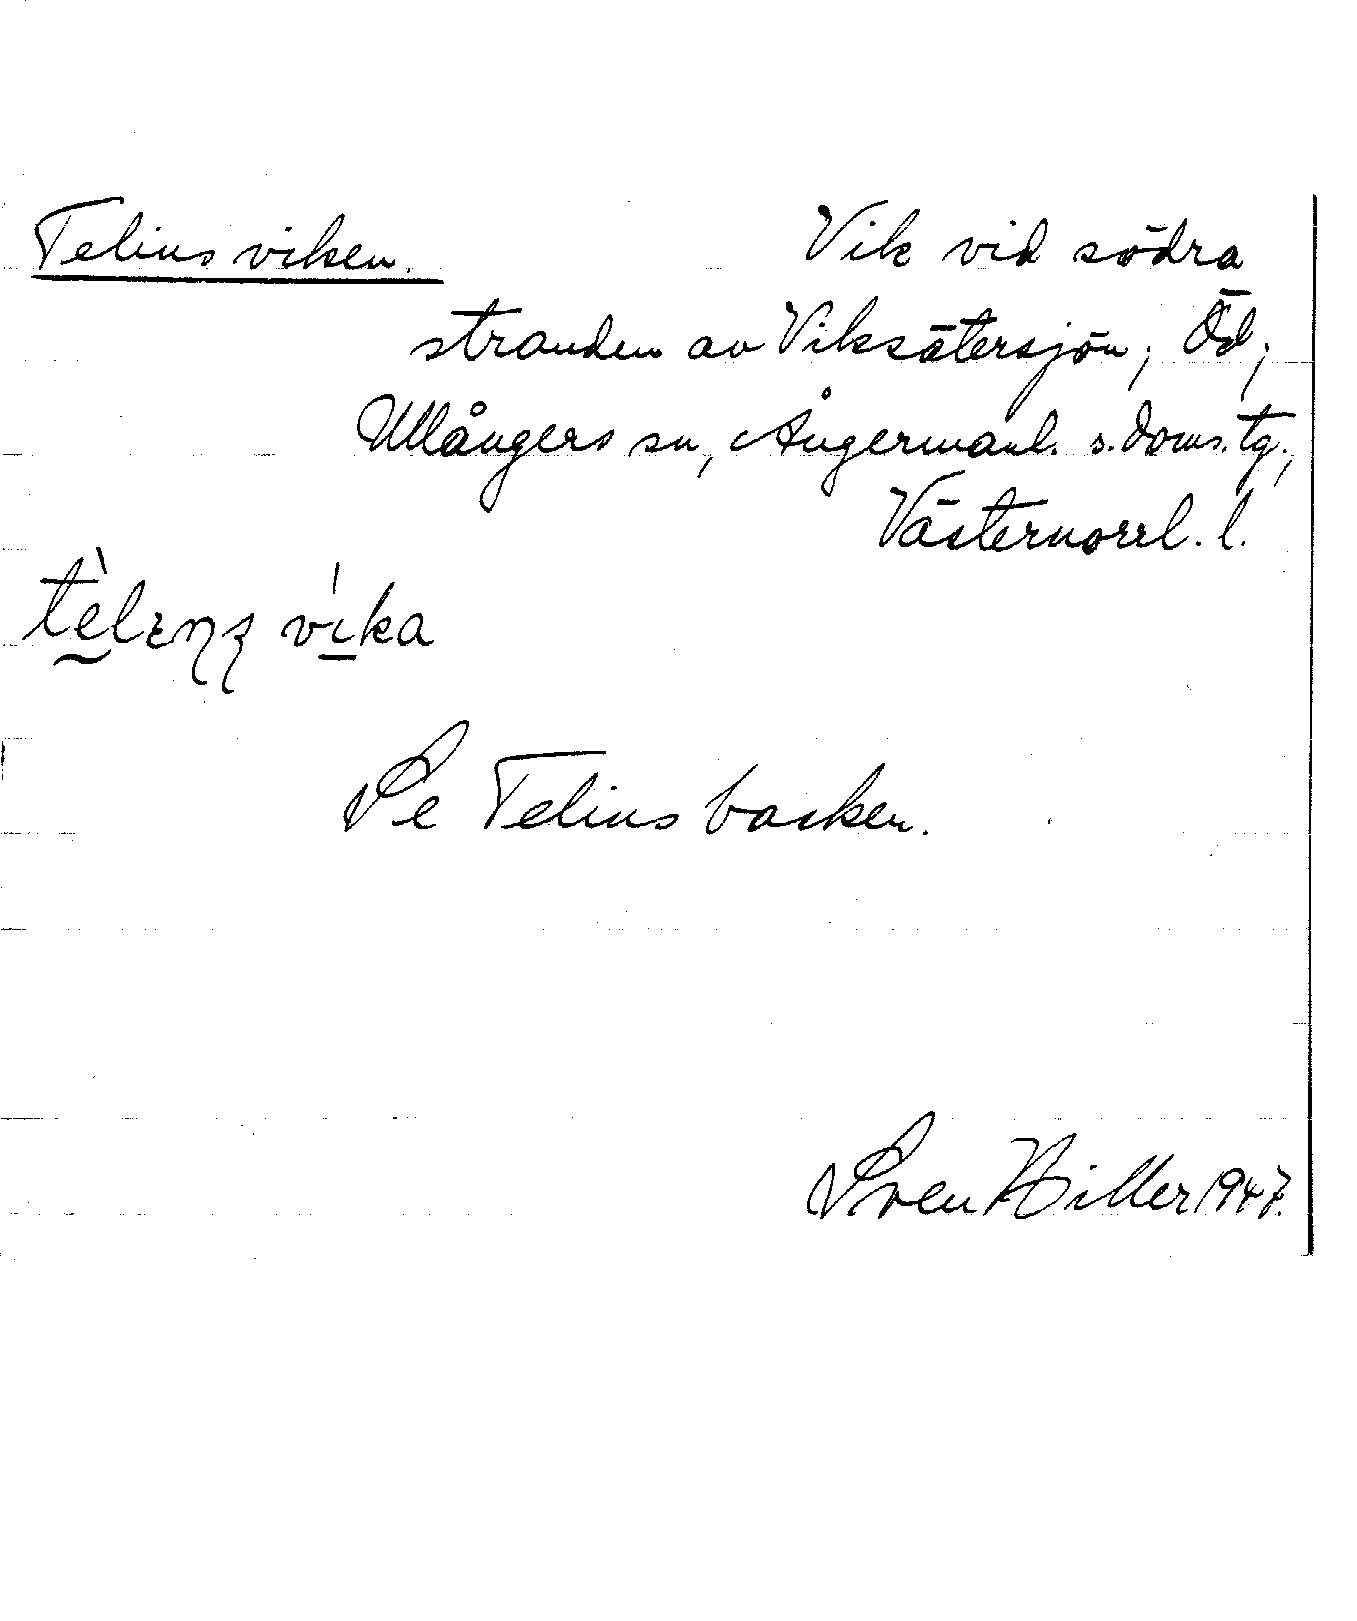 Telinsviken. Vik vid södra
stranden av Viksätersjön, Öd,
Ullångers sn, Ångermanl. s. doms. tg.,
Västernorrl. l.
vika
Se Telinsbacken.
Sven Hiller 1947.